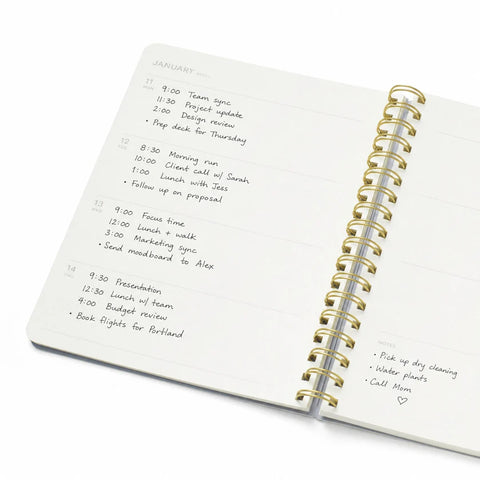 JANUARY 2021
11
MON
9:00 Team sync
11:30 Project update
2:00 Design review
• Prep deck for Thursday
12
TUE
8:30 Morning run
10:00 Client call w/ Sarah
1:00 Lunch with Jess
• Follow up on proposal
13
WED
9:00 Focus time
12:00 Lunch + walk
3:00 Marketing sync
• Send moodboard to Alex
14
THU
9:30 Presentation
12:30 Lunch w/ team
4:00 Budget review
• Book flights for Portland
NOTES
• Pick up dry cleaning
• Water plants
• Call Mom
♡